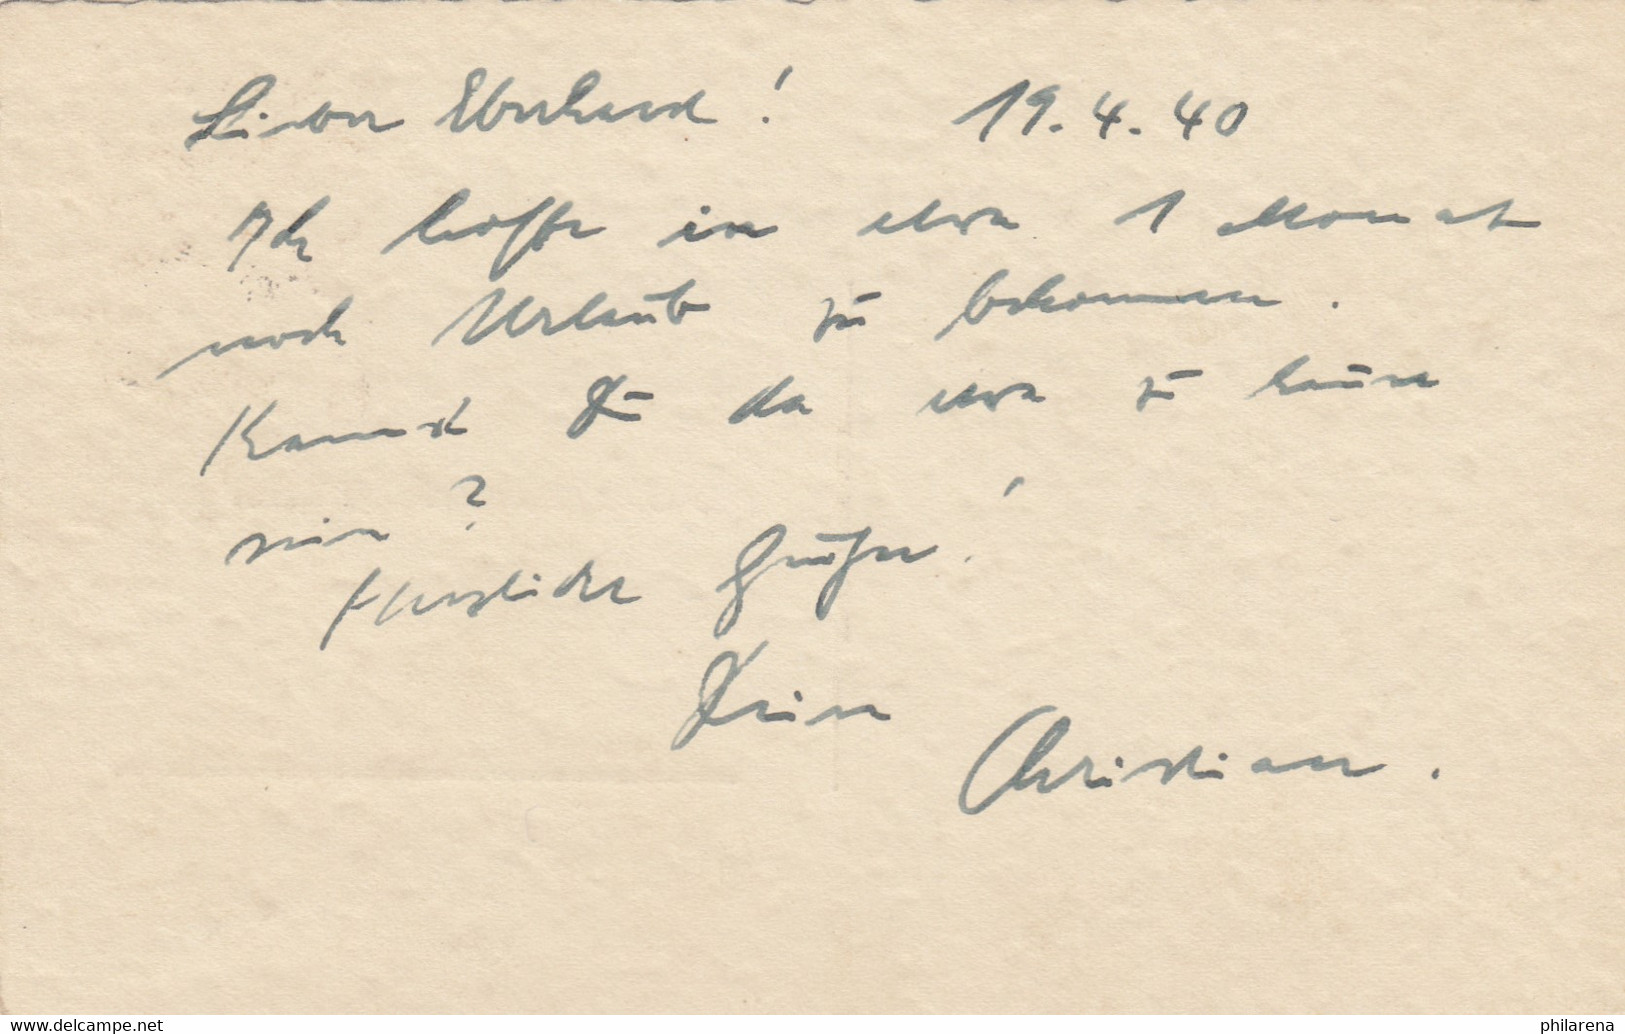 Lieber Eberhard! 19.4.40
Ich hoffe in etwa 1 Monat
noch Urlaub zu bekommen.
Kannst Du da etwa zu hause
sein?
Herzliche Grüße!
Dein
Christian.
www.delcampe.net
philarena